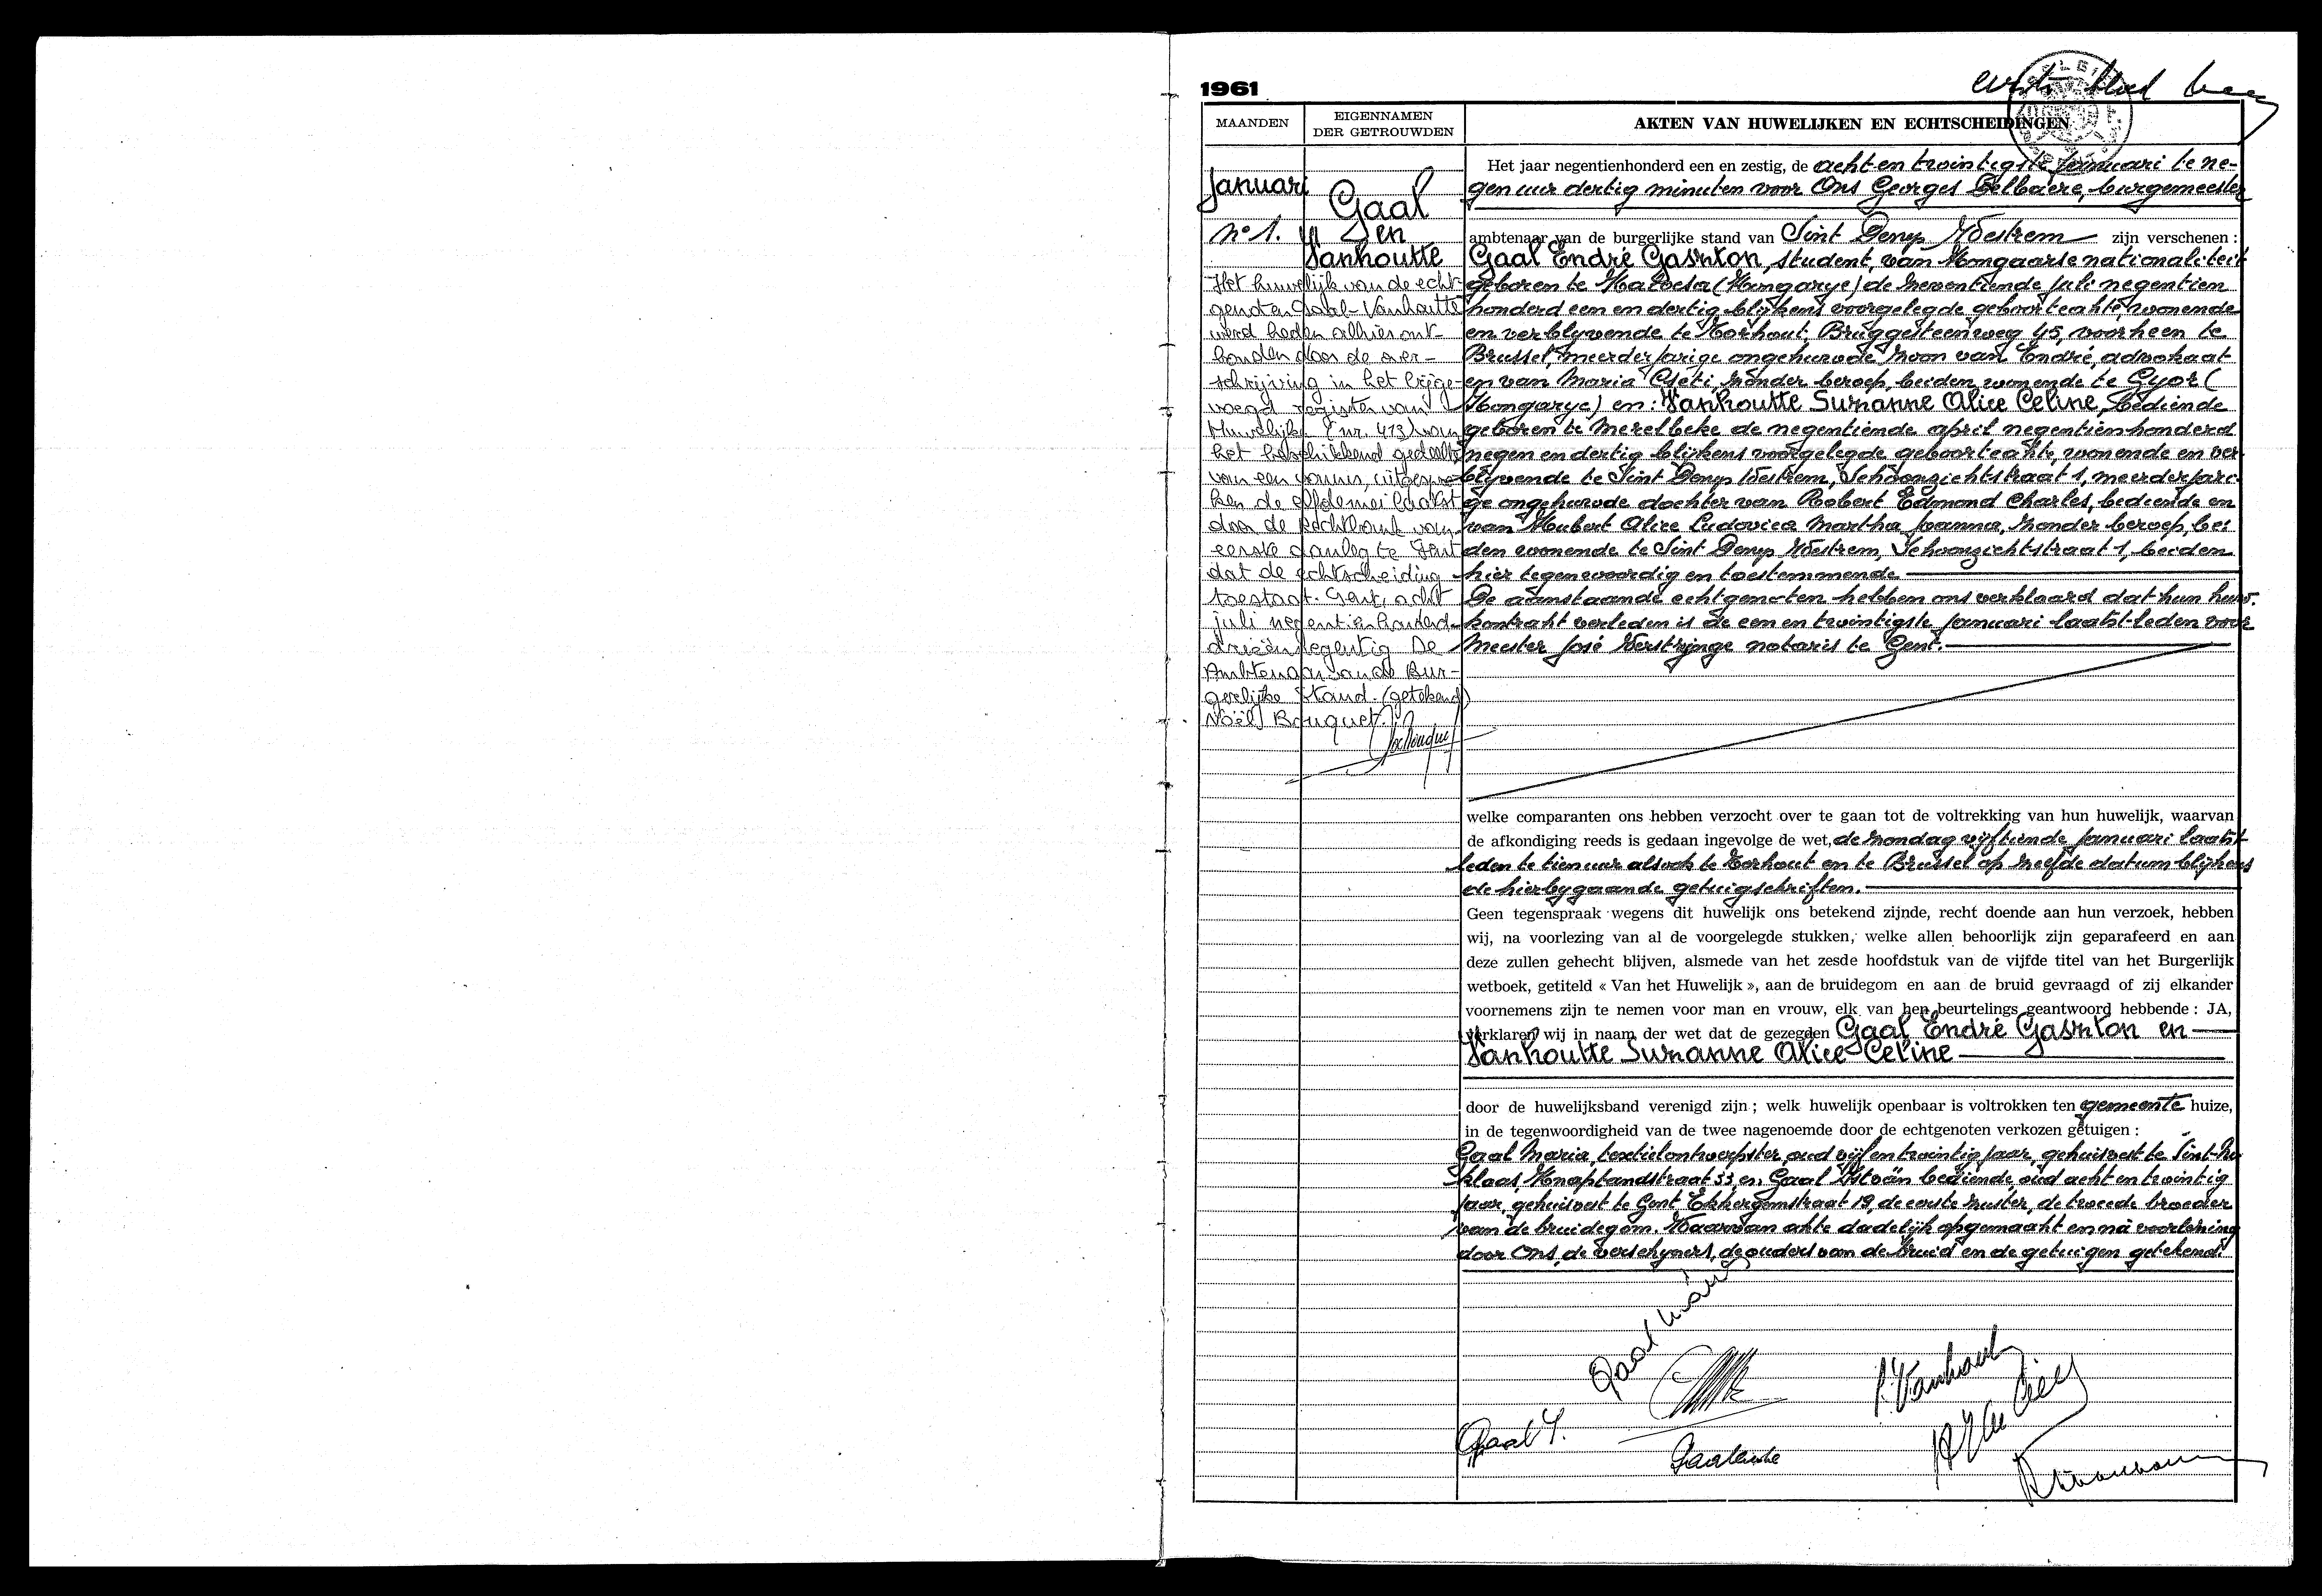 1961
eerste blad
MAANDEN
EIGENNAMEN
DER GETROUWDEN
AKTEN VAN HUWELIJKEN EN ECHTSCHEIDINGEN
Januari
n° 1.
Gaal
en
Vanhoutte
Het huwelijk van de echt-
genoten Gaal-Vanhoutte
werd heden alhier ont-
bonden door de over-
schrijving in het bijge-
voegd register van
Huwelijken (nr. 413) van
het beschikkend gedeelte
van een vonnis, uitgespro-
ken de elfde mei laatst
door de rechtbank van
eerste aanleg te Gent
dat de echtscheiding
toestaat. Gent, acht
juli negentienhonderd-
drieënzegentig De
Ambtenaar van de Bur-
gerlijke Stand. (getekend)
Noël Bouquet.
Het jaar negentienhonderd een en zestig, de acht en twintigste Januari te ne-
gen uur dertig minuten voor Ons Georges Delbaere, burgemeester
ambtenaar van de burgerlijke stand van Sint Denys Westrem zijn verschenen :
Gaal Endré Gaszton, student, van Hongaarse nationaliteit
geboren te (Hongarye) de zeventiende juli negentien
honderd een en dertig blijkens voorgelegde geboorteakte, wonende
en verblyvende te Torhout, Bruggesteenweg 45, voorheen te
Brussel, meerderjarige ongehuwde zoon van Endré, advokaat
en van Maria Cseti, zonder beroep, beiden wonende te Gyor (
Hongarye) en : Vanhoutte Suzanne Alice Celine, bediende
geboren te Merelbeke de negentiende april negentienhonderd
negen en dertig blijkens voorgelegde geboorteakte, wonende en ver-
blyvende te Sint Denys Westrem, Schoonzichtstraat 1, meerderjari-
ge ongehuwde dochter van Robert Edmond Charles, bediende en
van Hubert Alice Ludovica Martha Joanna, zonder beroep, bei
den wonende te Sint Denys Westrem, Schoonzichtstraat 1, beiden
hier tegenwoordig en toestemmende
De aanstaande echtgenoten hebben ons verklaard dat hun huw.
kontrakt verleden is de een en twintigste januari laatst-leden voor
Meester José Verstrynge notaris te Gent.
welke comparanten ons hebben verzocht over te gaan tot de voltrekking van hun huwelijk, waarvan
de afkondiging reeds is gedaan ingevolge de wet, de zondag vijftiende januari laatst-
leden te tien uur alsook te Torhout en te Brussel op zelfde datum blijkens
de hierbygaande getuigschriften.
Geen tegenspraak wegens dit huwelijk ons betekend zijnde, recht doende aan hun verzoek, hebben
wij, na voorlezing van al de voorgelegde stukken, welke allen behoorlijk zijn geparafeerd en aan
deze zullen gehecht blijven, alsmede van het zesde hoofdstuk van de vijfde titel van het Burgerlijk
wetboek, getiteld « Van het Huwelijk », aan de bruidegom en aan de bruid gevraagd of zij elkander
voornemens zijn te nemen voor man en vrouw, elk van hen beurtelings geantwoord hebbende : JA,
verklaren wij in naam der wet dat de gezegden Gaal Endré Gaszton en
Vanhoutte Suzanne Alice Celine
door de huwelijksband verenigd zijn ; welk huwelijk openbaar is voltrokken ten gemeente huize,
in de tegenwoordigheid van de twee nagenoemde door de echtgenoten verkozen getuigen :
Gaal Maria, textielontwerpster, oud vijf en twintig jaar, gehuisvest te Sint-Ni
klaas, Knaptandstraat 53, en Gaal Istvän bediende, oud acht en twintig
jaar, gehuisvest te Gent Ekkergemstraat 19, de eerste zuster, de tweede broeder
van de bruidegom. Waarvan akte dadelijk opgemaakt en na voorlezing
door Ons, de verschyners, de ouders van de bruid en de getuigen getekend.
Gaal Mária
Gaal I.
Gaalendre
S. Vanhoutte